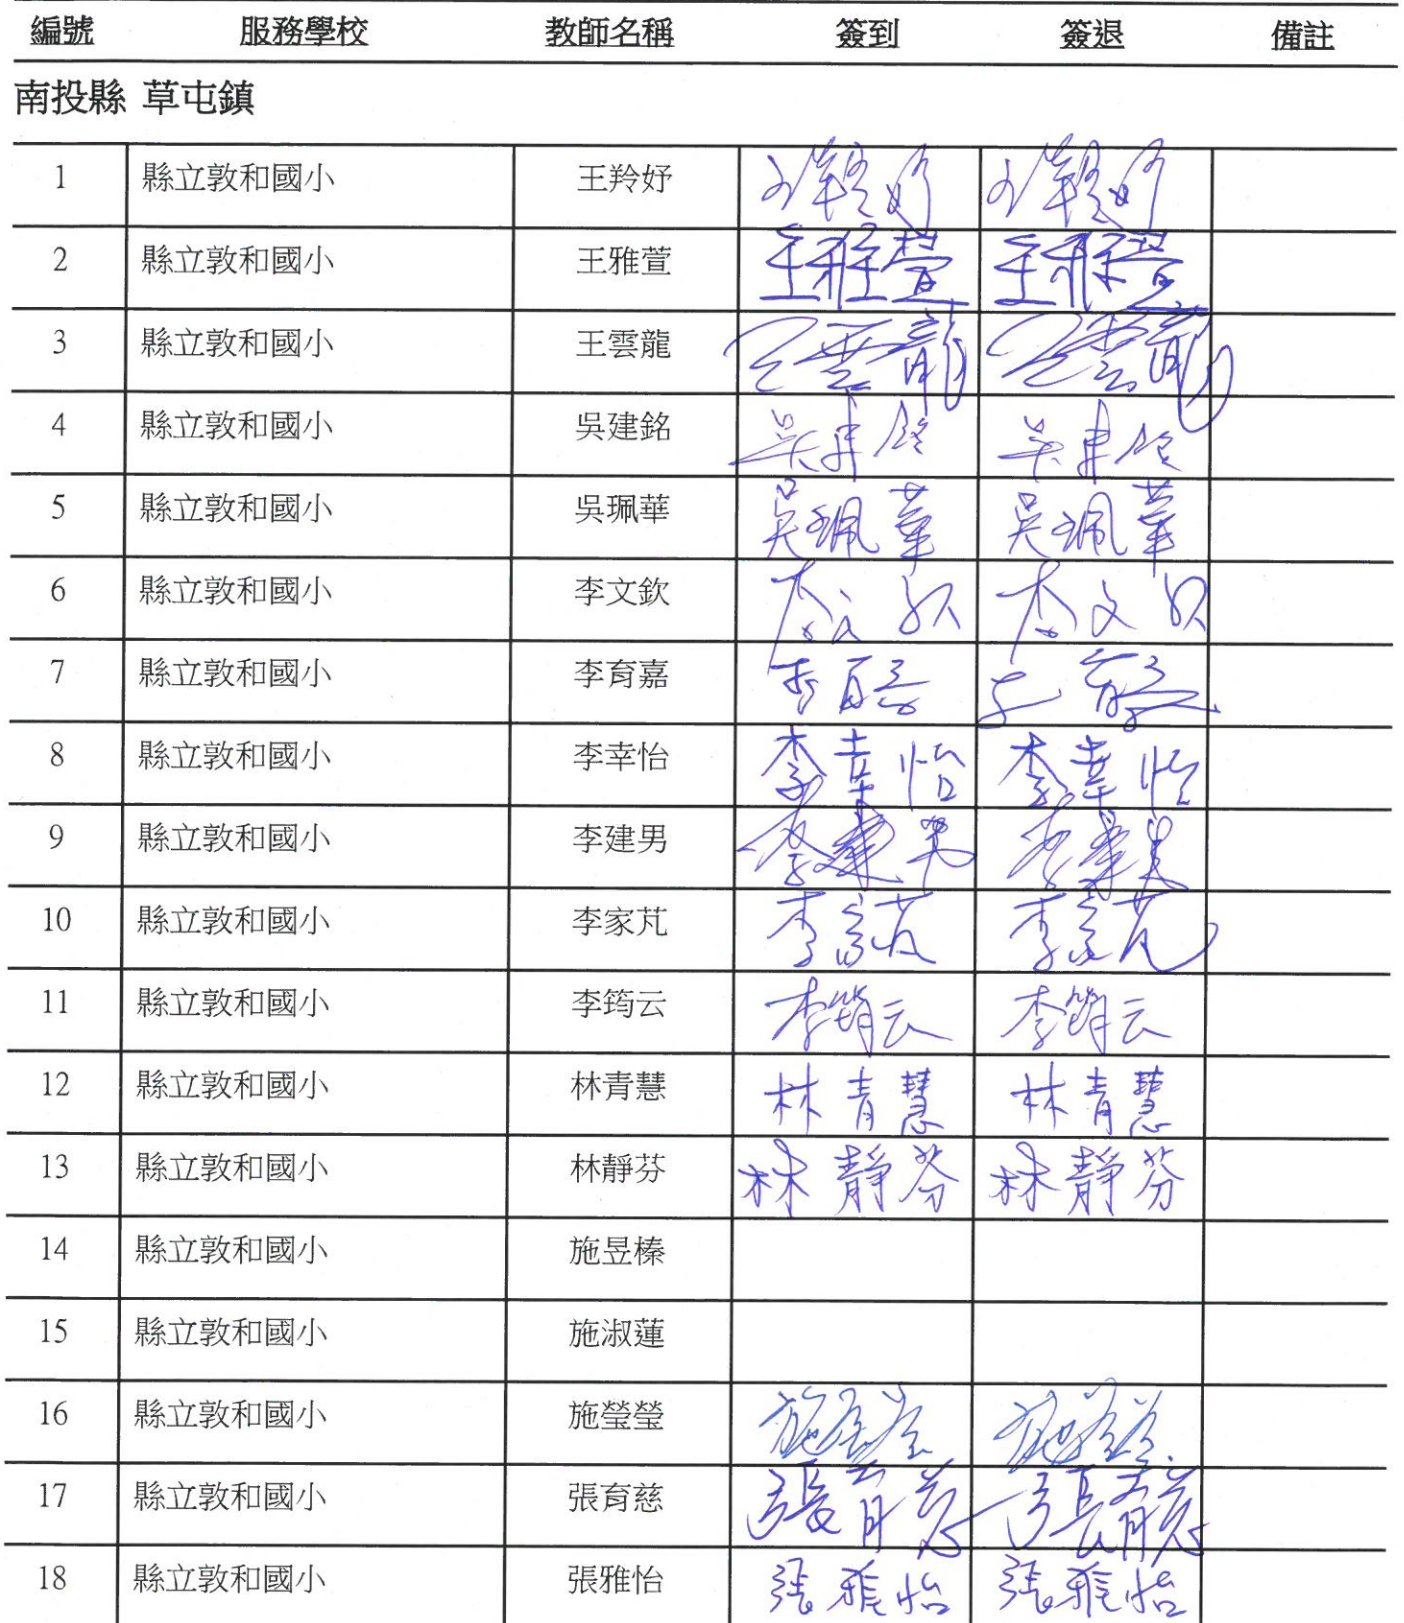 編號 服務學校 教師名稱 簽到 簽退 備註
南投縣 草屯鎮
1 縣立敦和國小 王羚妤 王羚妤 王羚妤
2 縣立敦和國小 王雅萱 王雅萱 王雅萱
3 縣立敦和國小 王雲龍 王雲龍 王雲龍
4 縣立敦和國小 吳建銘 吳建銘 吳建銘
5 縣立敦和國小 吳珮華 吳珮華 吳珮華
6 縣立敦和國小 李文欽 李文欽 李文欽
7 縣立敦和國小 李育嘉 李育嘉 李育嘉
8 縣立敦和國小 李幸怡 李幸怡 李幸怡
9 縣立敦和國小 李建男 李建男 李建男
10 縣立敦和國小 李家芃 李家芃 李家芃
11 縣立敦和國小 李筠云 李筠云 李筠云
12 縣立敦和國小 林青慧 林青慧 林青慧
13 縣立敦和國小 林靜芬 林靜芬 林靜芬
14 縣立敦和國小 施昱榛
15 縣立敦和國小 施淑蓮
16 縣立敦和國小 施瑩瑩 施瑩瑩 施瑩瑩
17 縣立敦和國小 張育慈 張育慈 張育慈
18 縣立敦和國小 張雅怡 張雅怡 張雅怡